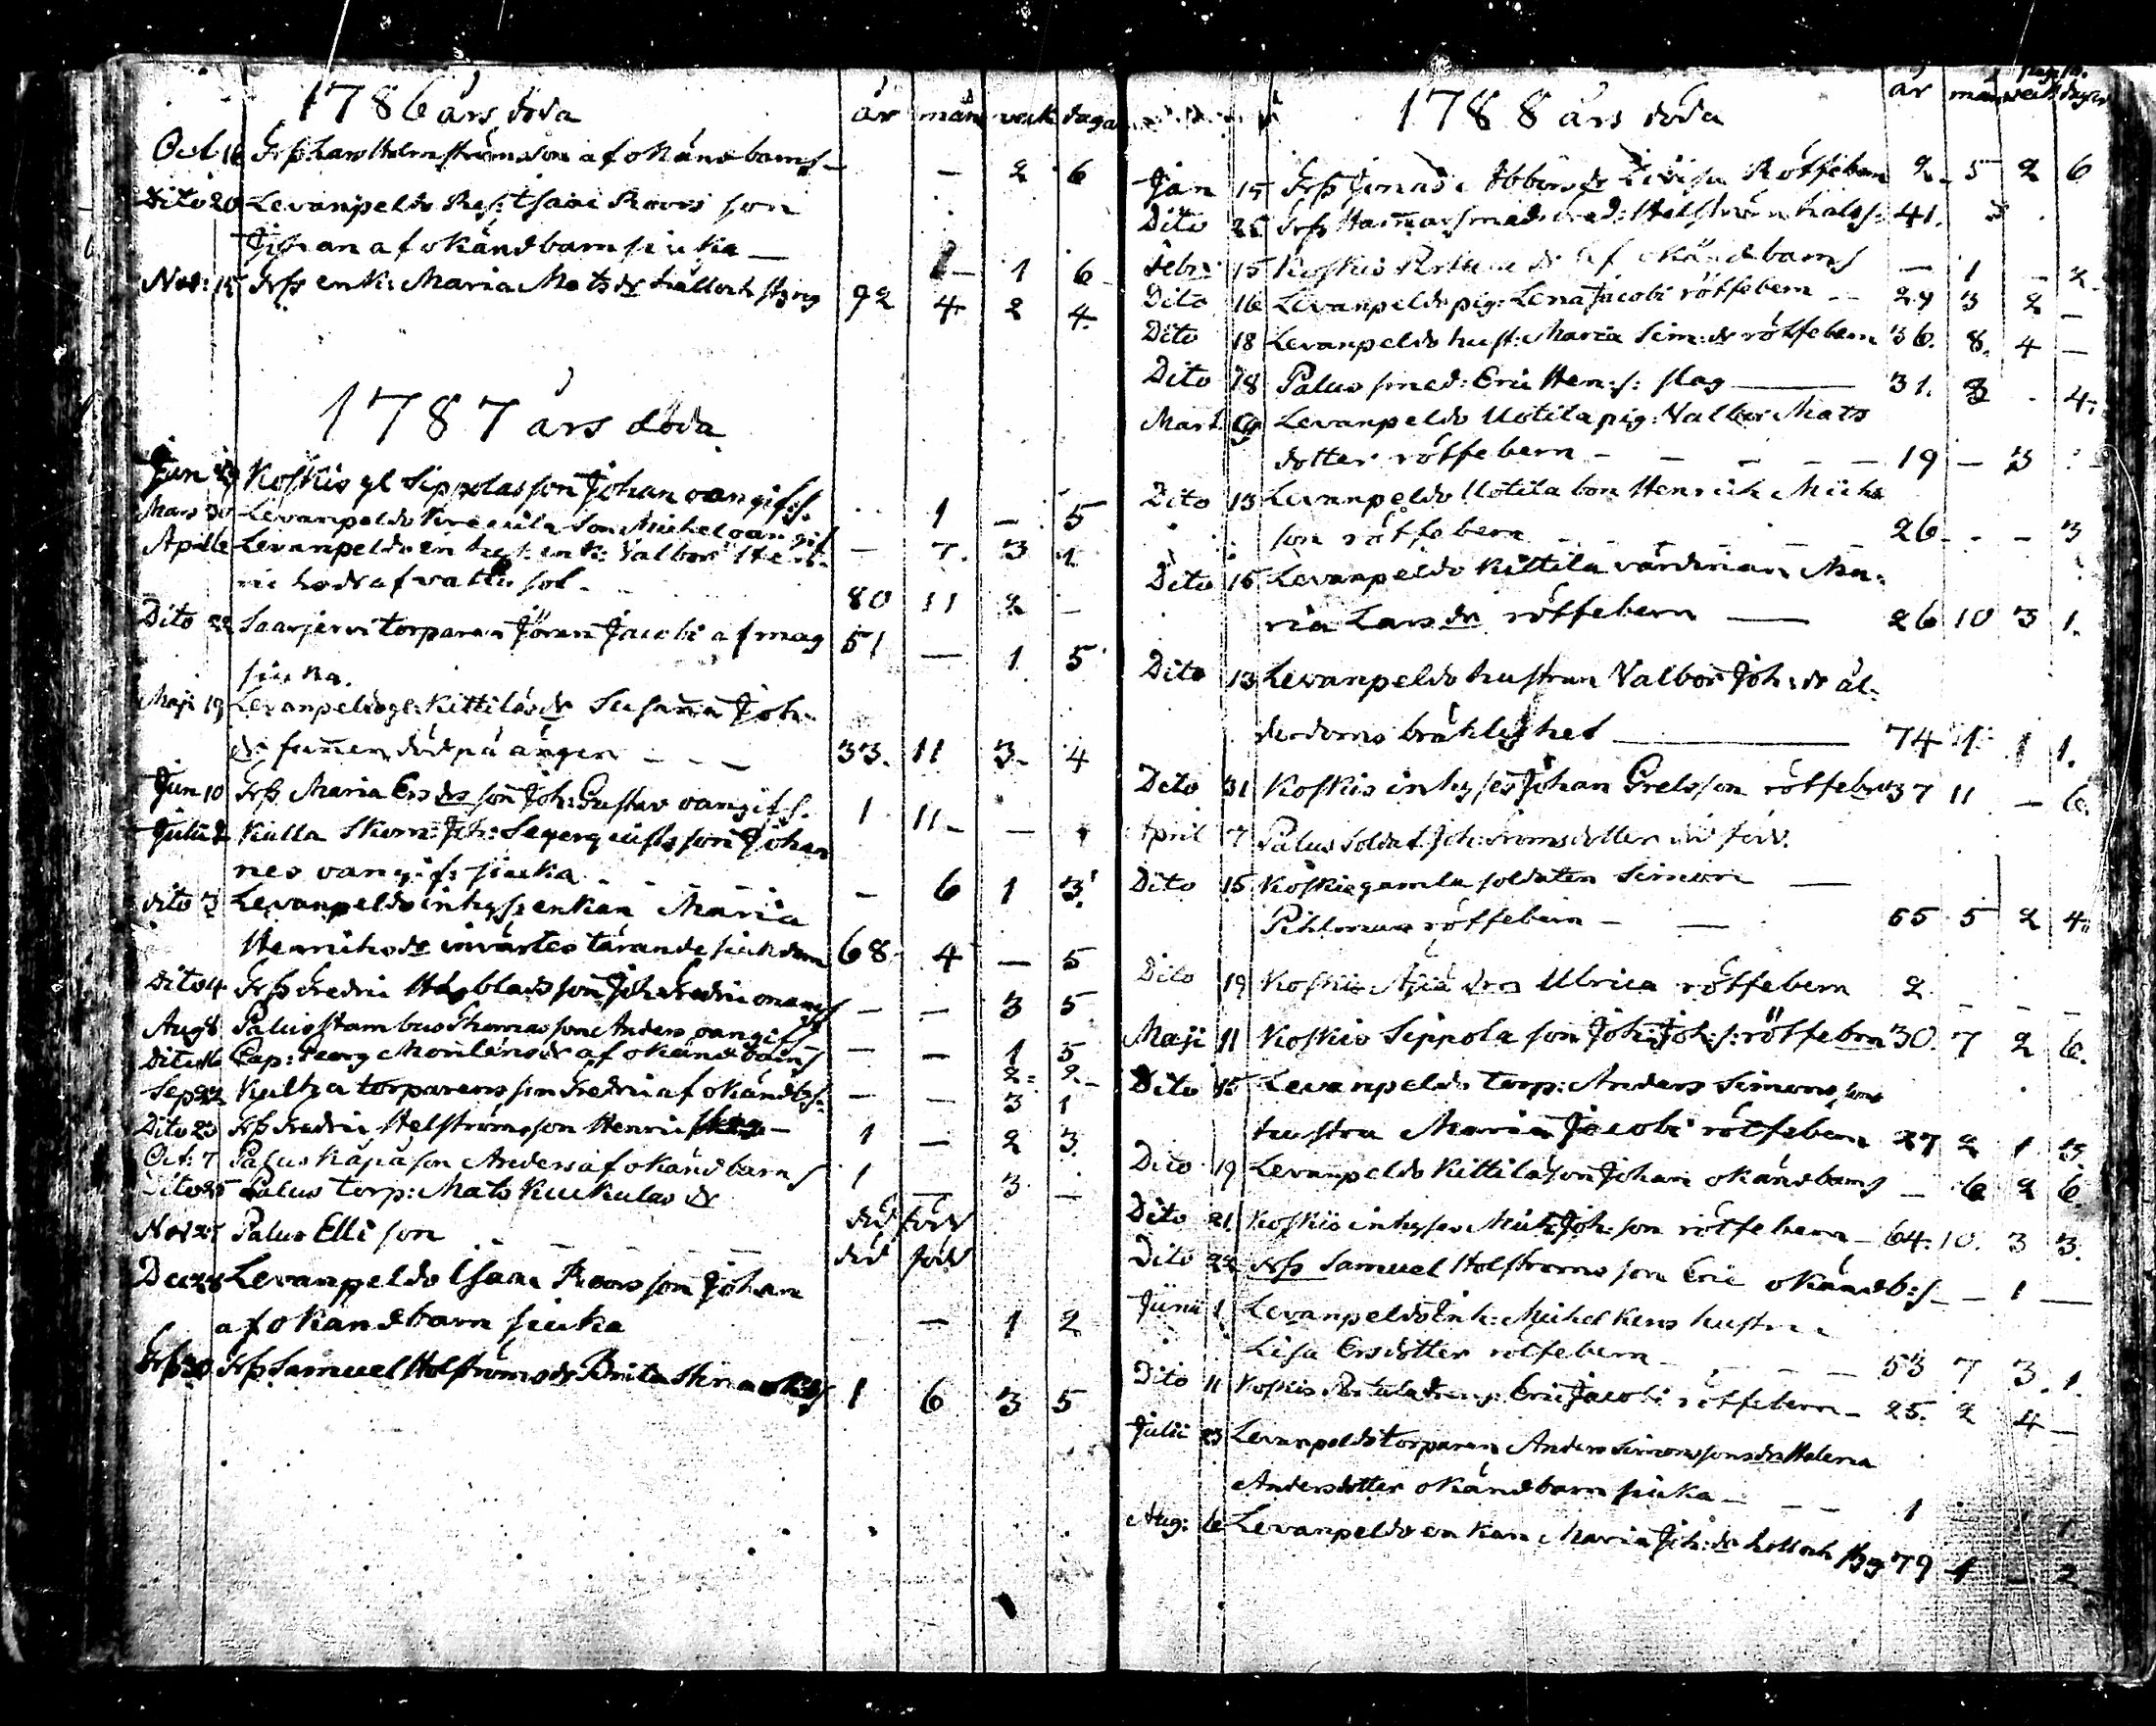 1786 års döda år mån veck daga
Oct 16 Frß Lars Holmströms son af okänd barns - - 2 6
Dito 20 Levanpeldo Isaac Roos son
Johan af okänd barn siuka - 1 6
Nov: 15 Frß enk: Maria Mats dr håll och styng 92 4 2 4.
1787 års döda
29 Koskis gl Sippolas son Johan oangif: s. 1 - 5
Mars 30 Levanpeldo son Michel oangif - 7. 3 1
April Levanpeldo enk: Valbor Hen
dr af vattu sot 80 11 2 -
Dito 22 Saarjervi torparen Jöran Jacobi af mag 51 - 1 5
siuka.
Maji 19 Levanpeldo gl: Kittilas dr Susanna Joh:
dr funnen död på ängen - - - 33. 11 3- 4
Jun 10 Frß Maria Ers drs son Joh: Gustav oangif s. 1 11 - -
Julii 2 Kulla Joh: son Johan
nes oangif: siuka - 6 1 3.
Dito 3 Levanpeldo inhys enkan Maria
Henrichs dr invärtes tärande siukdom 68 4 - 5
Dito 4 Frß Fredric Högblads son Joh: Fredric - - 3 5
Aug 8 Palus Thomas son Anders oangif s - - 1 5
Dito 16 Cap: Georg dr af okänd barns 2- 2-
Sep 22 torparens son Fredric af okänd bs: - - 3 1
Dito 23 Frß Fredric Helströms son Henric - 1 - 2 3.
Oct: 7 Palus Käpä son Anders af okänd barns 1 - 3 -
Dito 25 Palus torp: Mats Kuckulas dr död född
Nov 25 Palus Elli son - - - - död född
Dec 28 Levanpeldo Isaac Roos son Johan
af okänd barn siuka - 1 2
30 Frß Samuel Holströms dr Brita Stina 1 6 3 5
1788 års döda år mån veck dagar
Jan 15 Frß Jonas dr Rötfebern 2. 5 2 6
Dito 25 Frß Hammarsmed: Fred: Helström hals s: 41.
Febr: 15 Koskis dr af okänd barns - 1 - 2
Dito 16 Levanpeldo pig: Lena Jacobi rötfebern - 29 3 2 -
Dito 18 Levanpeldo hust: Maria Sim: dr rötfebern 36. 8. 4 -
Dito 18 Palus smed: Eric Hen: s: slag 31. 3 . 4.
Mart. 9 Levanpeldo Uotila pig: Valbor Mats
dotter rötfebern - - - - 19 - 3
Dito 13 Levanpeldo Uotila bon Henrich Michs
son rötfebern - - - - 26 - - 3
Dito 15 Levanpeldo Kittila värdinan Ma-
ria Lars dr rötfebern 26 10 3 1.
Dito 13 Levanpeldo hustrun Valbor Joh: dr ål-
derdoms bräklighet 74 1 1 1.
Dito 31 Koskis inhyses Johan Grelsson rötfebrn 37 11 - 6.
April 7 Palus Soldat Joh: Froms dotter död född.
Dito 15 Koskis gamla soldaten Simon -
Pihlman rötfebern - - 55 5 2 4.
Dito 19 Koskis drs Ulrica rötfebern 2. - - -
Maji 11 Koskis Sippola son Joh: Joh: s: rötfebrn 30. 7 2 6.
Dito 15 Levanpeldo torp: Anders Simonssons
hustru Maria Jacobi rötfebern 27 2 1 3
Dito 19 Levanpeldo Kittila son Johan okänd barns - 6 2 6.
Dito 21. Koskis inhyses Mich: Joh: son rötfebern - 64. 10. 3 3.
Dito 22 Frß Samuel Holströms son Eric okänd b: s - - 1 -
Junii 1 Levanpeldo Inh: Michel Kens hustru
Lisa Ersdotter rötfebern - - - 53 7 3. 1.
Dito 11 Koskis Pertula dreng: Eric Jacobi rötfebern - 25. 2 4 -
Julii 23 Levanpeldo torparen Anders Simonssons dr Helena
Andersdotter okänd barn siuka - - - 1
Aug: 6 Levanpeldo enkan Maria Joh: dr håll och styg 79 1 - 2